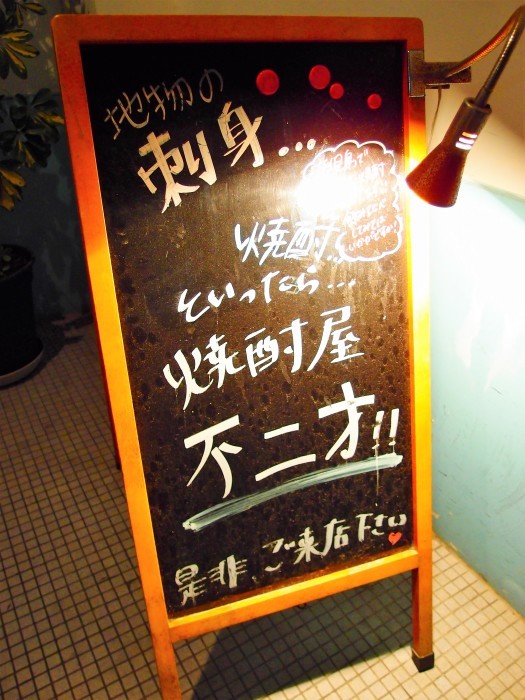 地物の
刺身…
焼酎…
といったら…
焼酎屋
不二才!!
是非、ご来店下さい